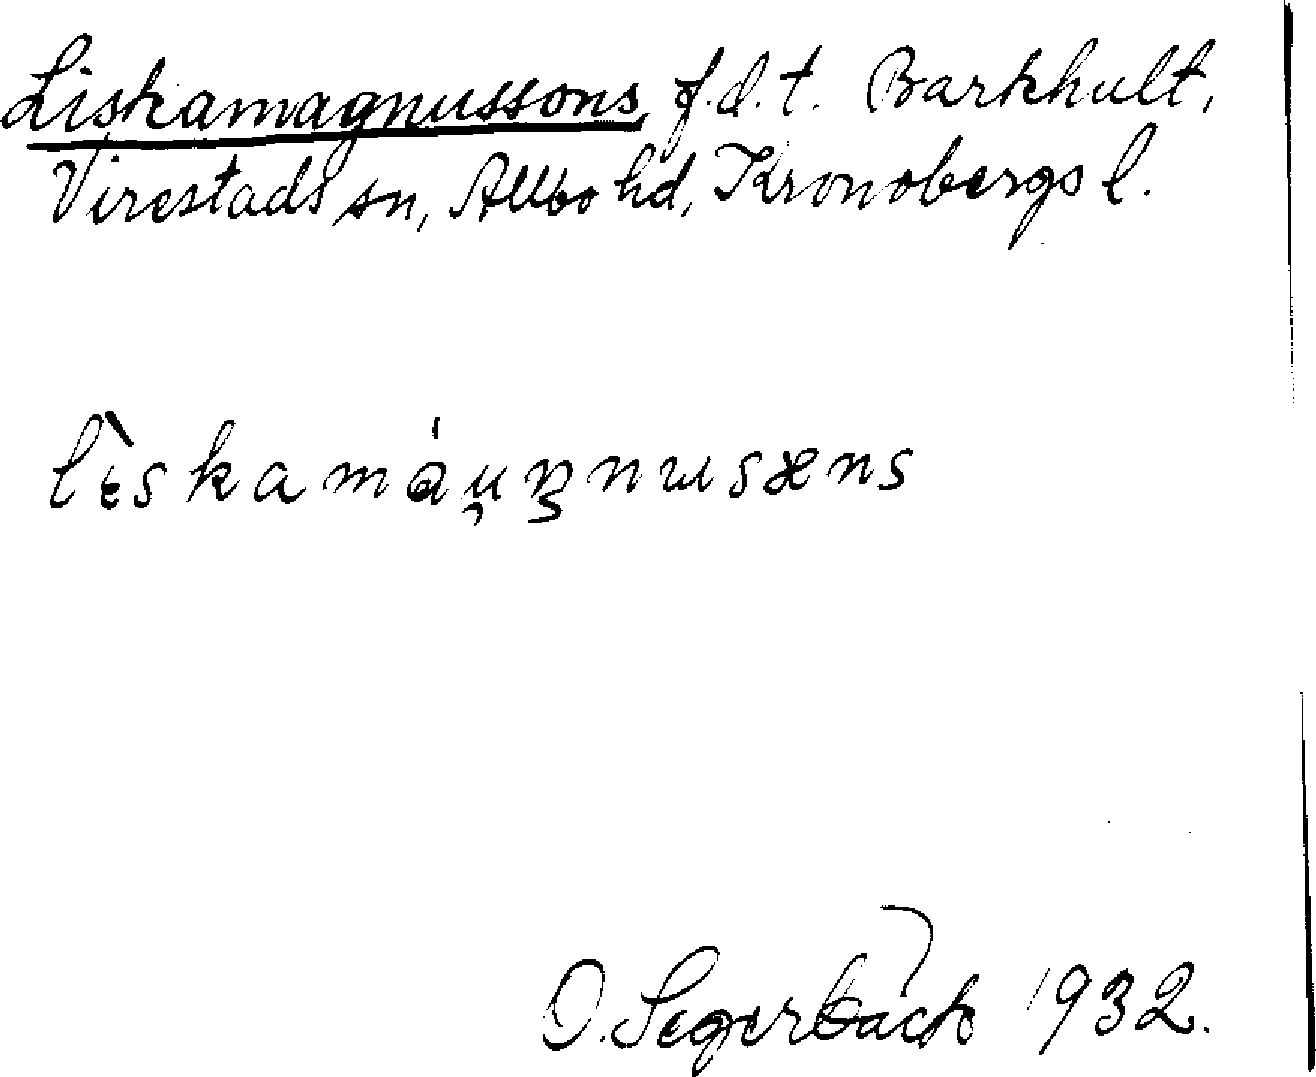 Liskamagnussons, f.d.t. Barkhult,
Virestads sn, Allbo hd, Kronobergs l.
lìskamáu̯ŋnusæns
O. Segerbäck 1932.